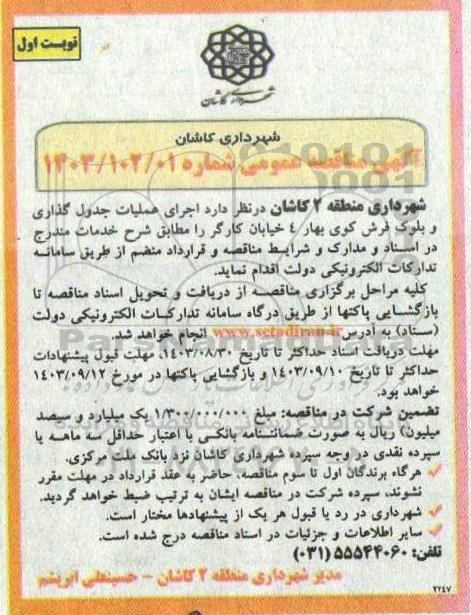 نوبت اول
شهرداری کاشان
شهرداری کاشان
آگهی مناقصه عمومی شماره ۱۴۰۳/۱۰۲/۰۱
شهرداری منطقه ۲ کاشان درنظر دارد اجرای عملیات جدول گذاری
و بلوک فرش کوی بهار ٤ خیابان کارگر را مطابق شرح خدمات مندرج
در اسناد و مدارک و شرایط مناقصه و قرارداد منضم از طریق سامانه
تدارکات الکترونیکی دولت اقدام نماید.
کلیه مراحل برگزاری مناقصه از دریافت و تحویل اسناد مناقصه تا
بازگشایی پاکتها از طریق درگاه سامانه تدارکات الکترونیکی دولت
(ستاد) به آدرس www.setadiran.ir انجام خواهد شد.
مهلت دریافت اسناد حداکثر تا تاریخ ۱۴۰۳/۰۸/۳۰، مهلت قبول پیشنهادات
حداکثر تا تاریخ ۱۴۰۳/۰۹/۱۰ و بازگشایی پاکتها در مورخ ۱۴۰۳/۰۹/۱۲
خواهد بود.
تضمین شرکت در مناقصه: مبلغ ۱/۳۰۰/۰۰۰/۰۰۰ یک میلیارد و سیصد
میلیون) ریال به صورت ضمانتنامه بانکی با اعتبار حداقل سه ماهه یا
سپرده نقدی در وجه سپرده شهرداری کاشان نزد بانک ملت مرکزی.
✓ هرگاه برندگان اول تا سوم مناقصه، حاضر به عقد قرارداد در مهلت مقرر
نشوند، سپرده شرکت در مناقصه ایشان به ترتیب ضبط خواهد گردید.
✓ شهرداری در رد یا قبول هر یک از پیشنهادها مختار است.
✓ سایر اطلاعات و جزئیات در اسناد مناقصه درج شده است.
تلفن: ۵۵۵۴۴۰۶۰ (۰۳۱)
مدیر شهرداری منطقه ۲ کاشان - حسینعلی ابریشم
۲۲٤۷